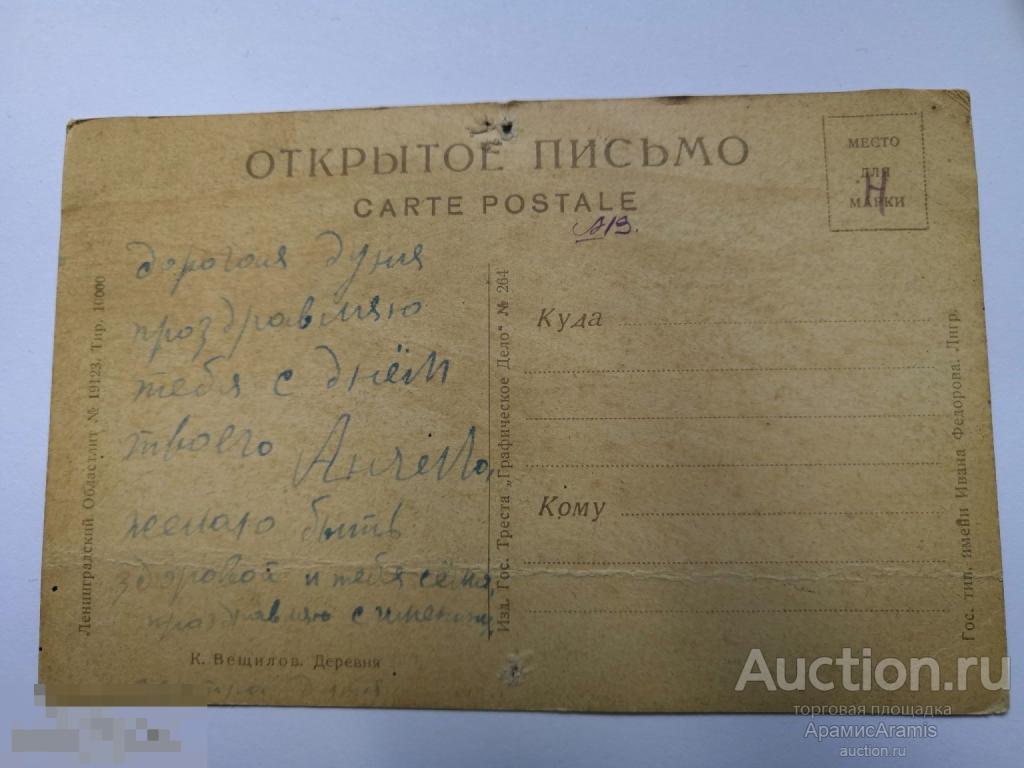 ОТКРЫТОЕ ПИСЬМО
CARTE POSTALE
МЕСТО
ДЛЯ
МАРКИ
Н
дорогая Дуня
проздравляю
тебя с днём
твоего Ангела,
желаю быть
здоровой и тебя сёма
проздравлю с
К. Вещилов. Деревня
Ленинградский Областлит № 19123. Тир. 10000
Изд. Гос. Треста „Графическое Дело“ № 264
Куда
Кому
Гос. тип. имени Ивана Федорова. Лнгр.
Auction.ru
торговая площадка
АрамисAramis
auction.ru